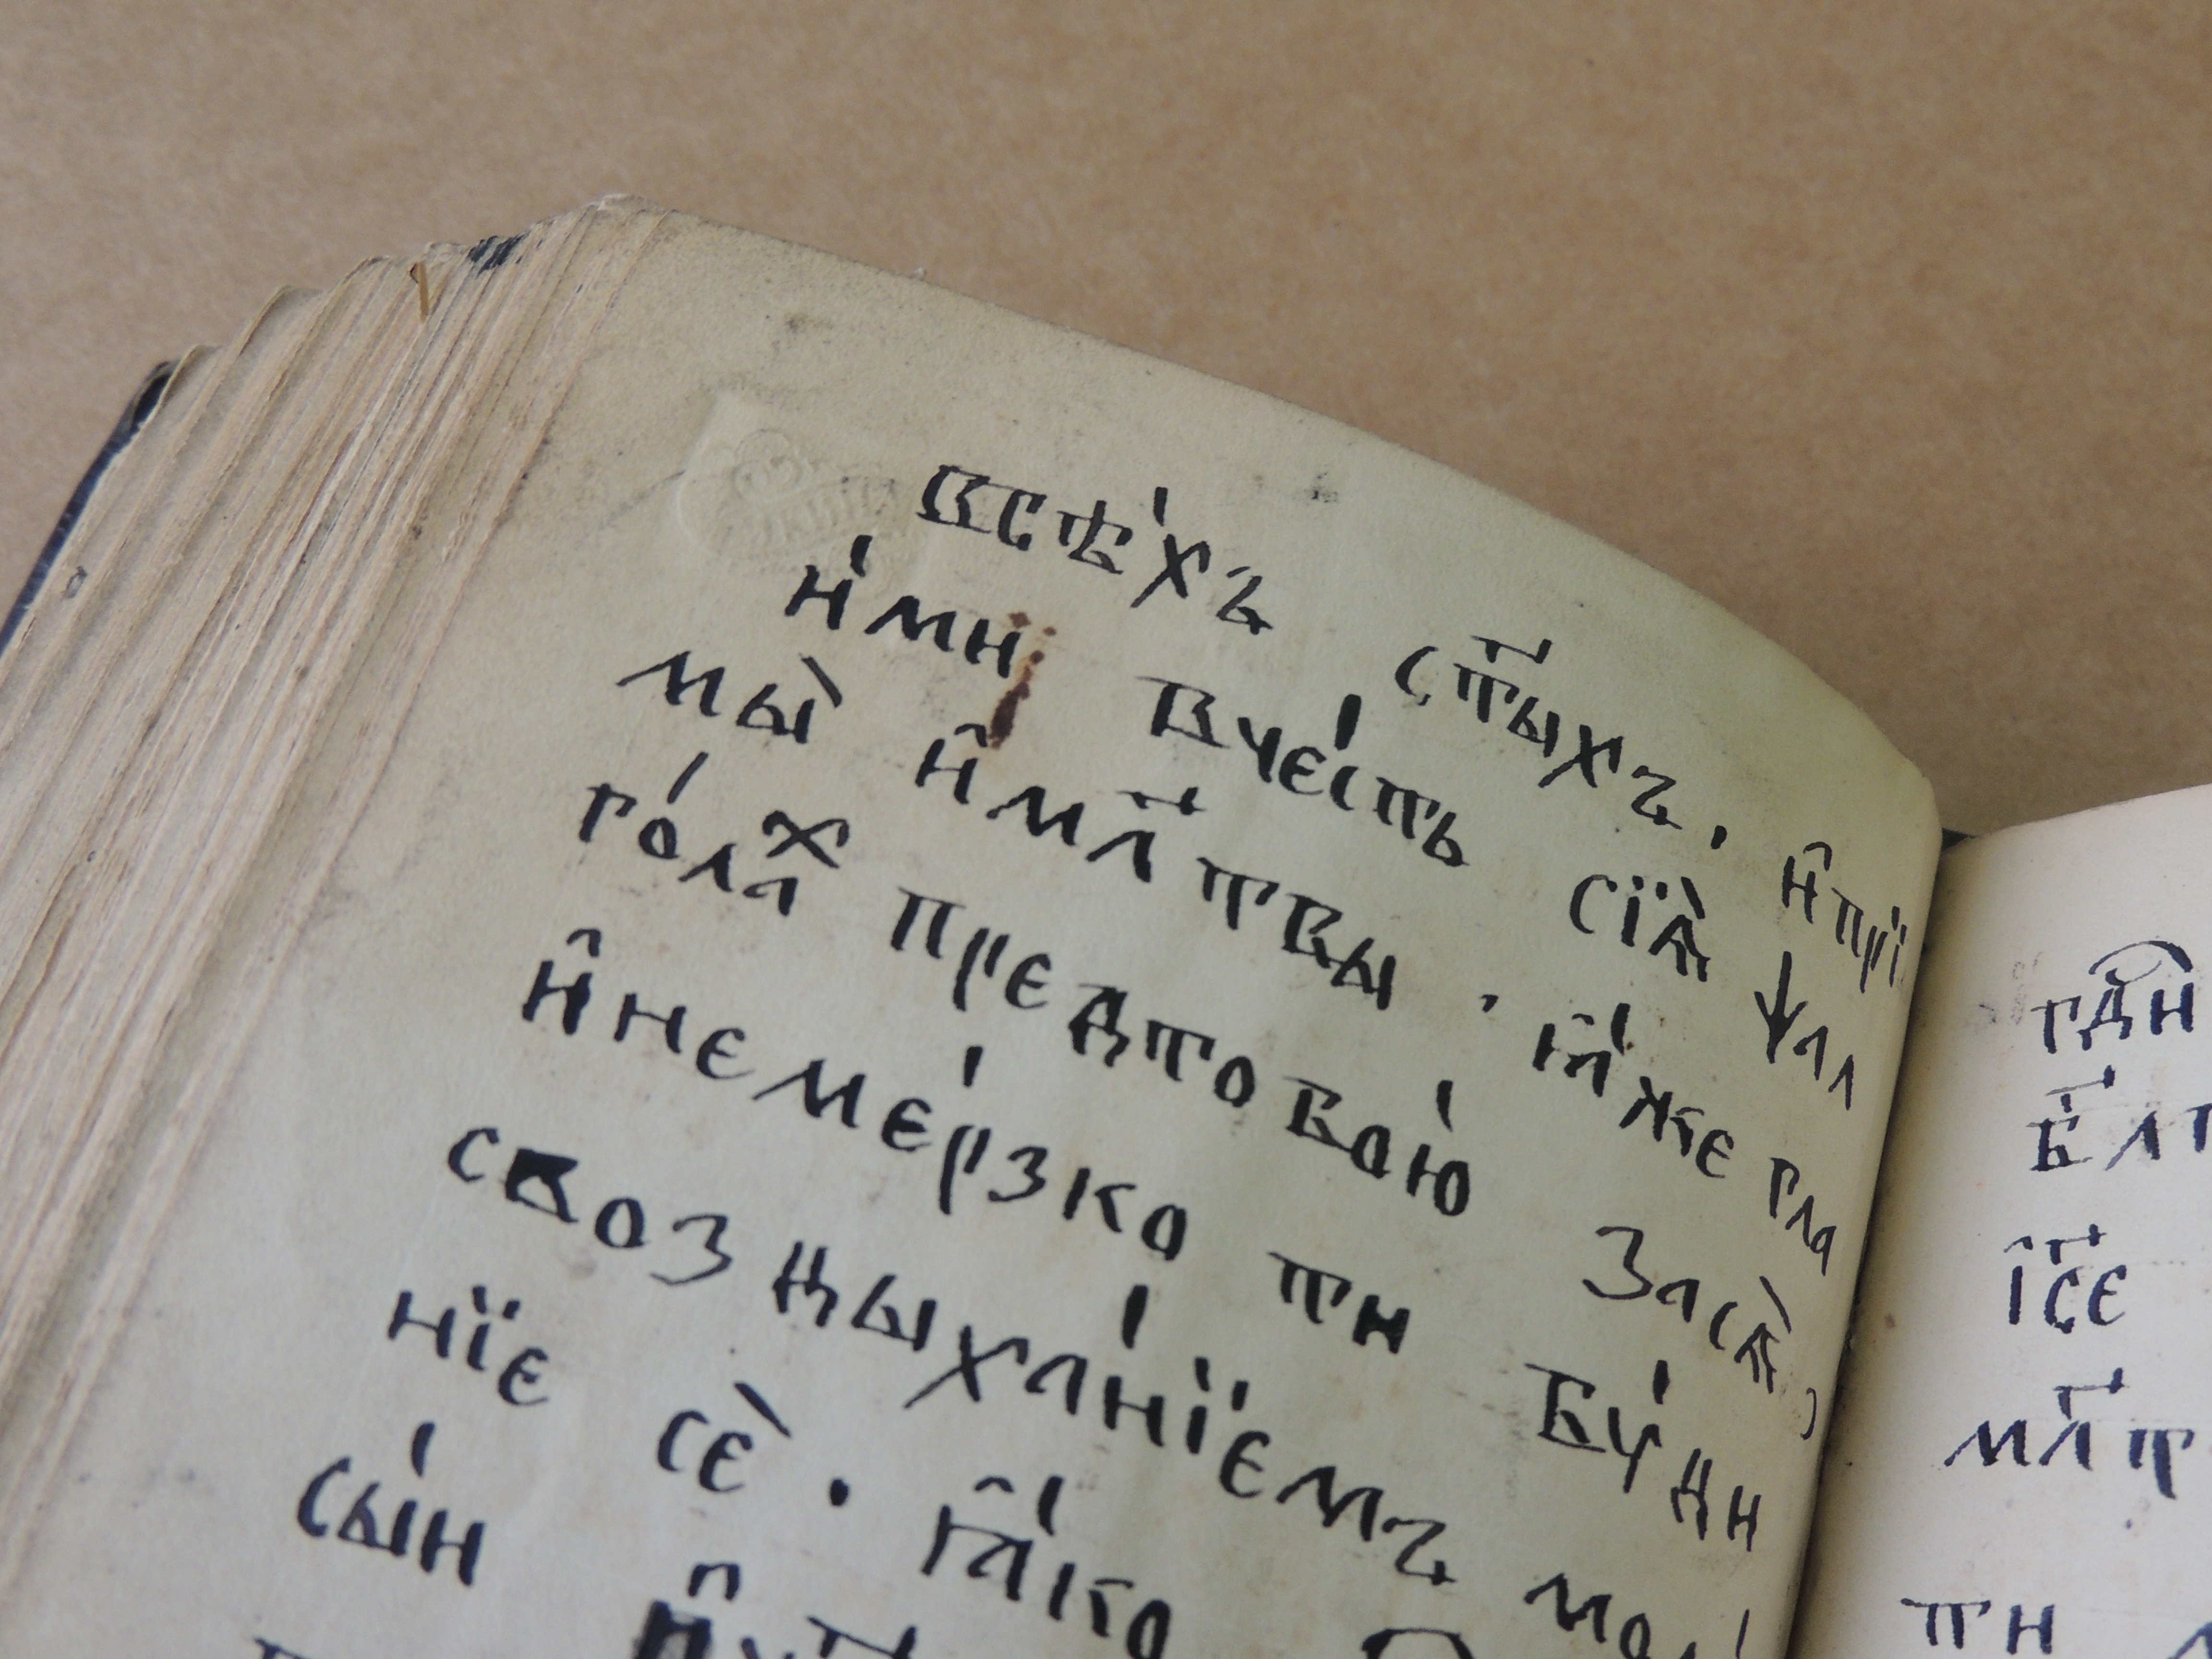 всѣ́хъ ст҃ыхъ, и҆прїи
и́мн вче́сть сїѧ̀ ѱал
мы̀ и҆мл҃твы, ꙗ҆́же гла
го́лах предтобо́ю засѧ̀,
и҆неме́рзко ти бꙋ́ди
свозды́ха́нїемъ мо
нїе сѐ. ꙗ҆́ко
сы́й
гд҇и
бл҃г
і҆с҃е
мл҃т
ти